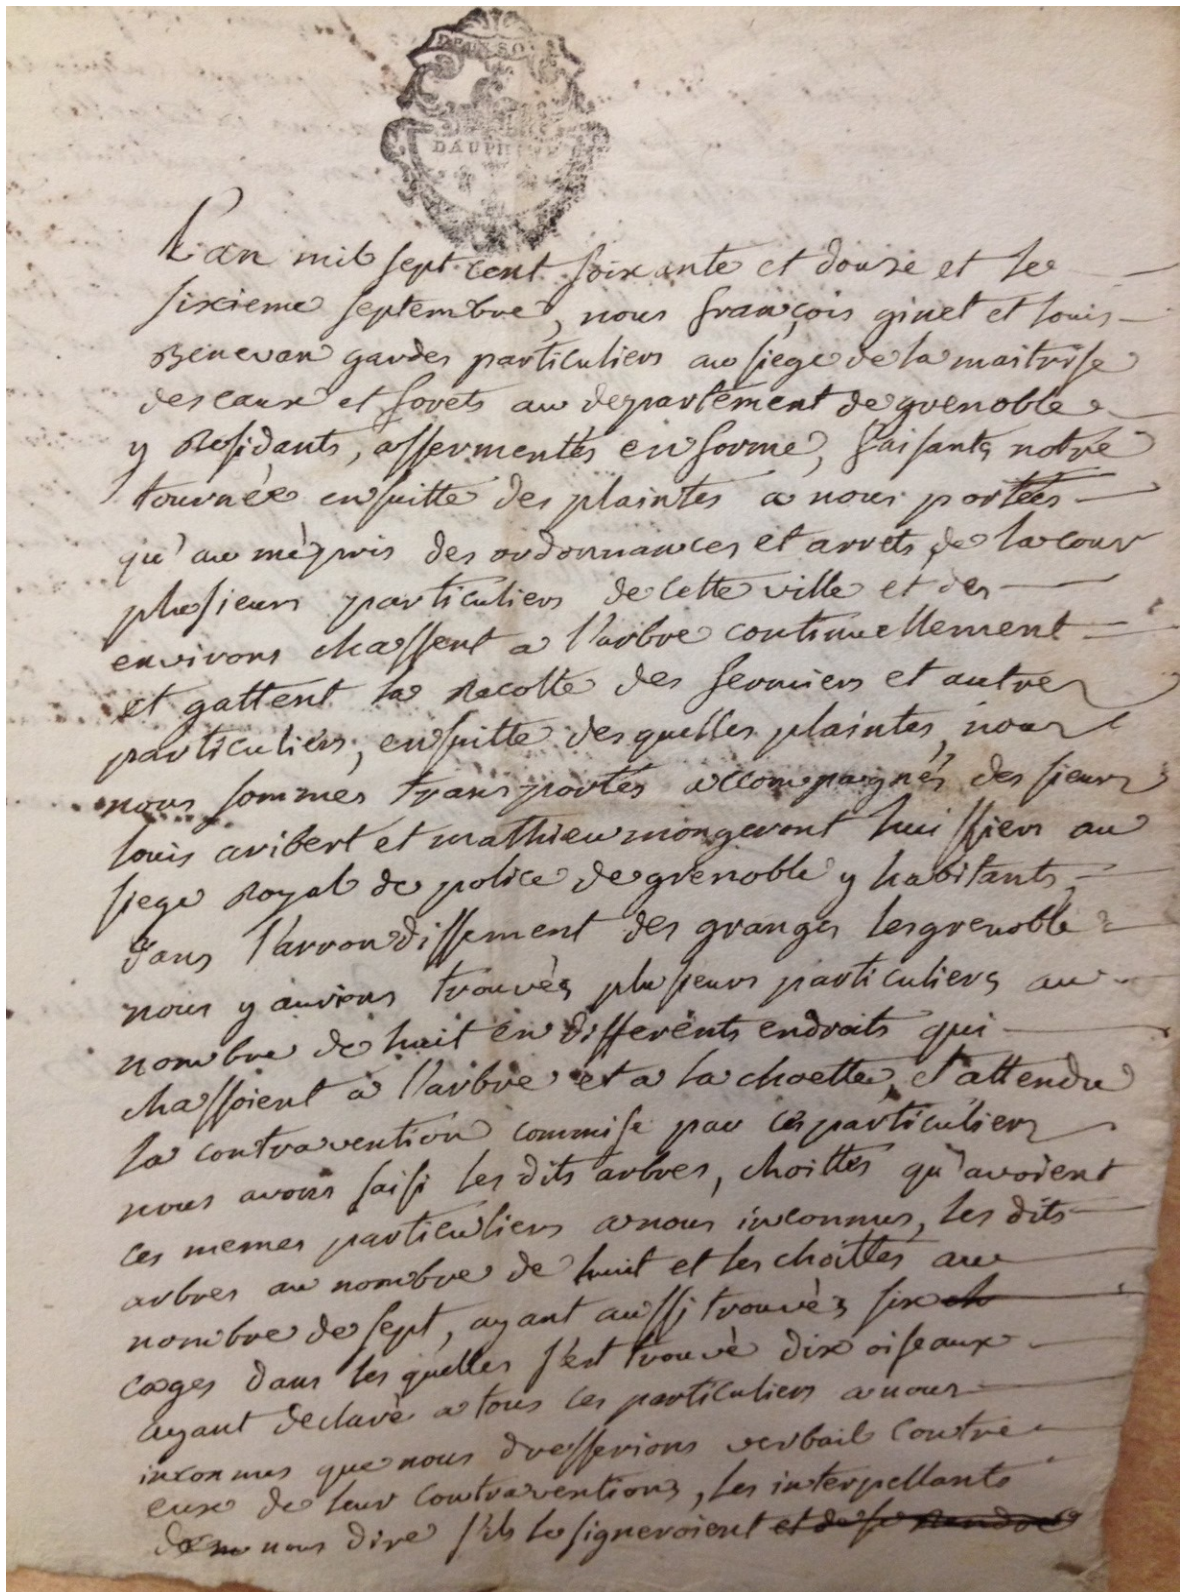 DEUX SO
DAUPH
L'an mil sept cent soixante et douze et le
sixieme septembre, nous françois ginet et louis
Benevan gardes particuliers au siege de la maitrise
des eaux et forets au departement de grenoble
y Residants, assermentés en forme, faisants notre
tournée ensuitte des plaintes a nous portées
qu'au mépris des ordonnances et arrets de la cour
plusieurs particuliers de cette ville et des
environs chassent a l'arbre continuellement
et gattent la Recolte des fermiers et autres
particuliers, ensuitte des quelles plaintes, nous
nous sommes transportés accompagnés des sieurs
louis aribert et mathieu mongeront huissiers au
siege Royal de police de grenoble y habitants,
dans l'arrondissement des granges les grenoble
nous y aurions trouvés plusieurs particuliers au
nombre de huit en differents endroits qui
chassoient à l'arbre et a la choette, et attendu
la contravention commise par ces particuliers
nous avons saisi les dits arbres, choittes qu'avoient
ces memes particuliers a nous inconnus, les dits
arbres au nombre de huit et les choittes au
nombre de sept, ayant aussi trouvés six ch
cages dans les quelles s'est trouvé dix oiseaux
ayant declaré a tous ces particuliers a nous
inconnus que nous dresserions verbail contre
eux de leur contraventions, les interpellants
de nous dire s'ils le signeroient et de se Rendre